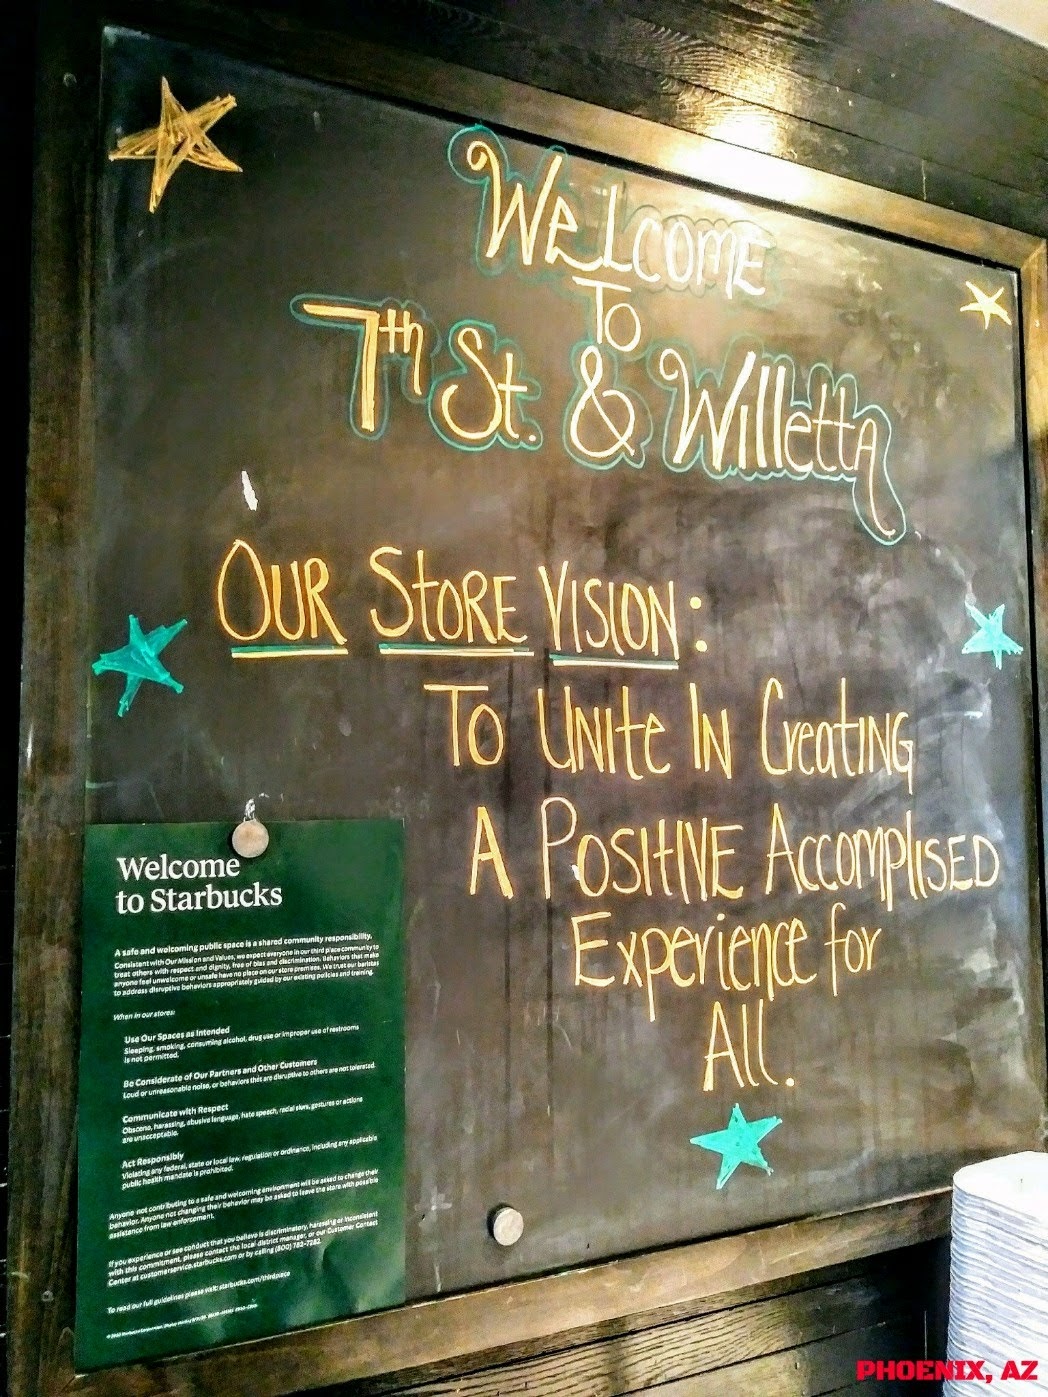 WeLcoME
To
7th St. & Willetta
OUR StoRE VISION:
To UNIte IN CreatING
A POSItIVE AccoMplISED
Experience for
All.
Welcome
to Starbucks
A safe and welcoming public space is a shared community responsibility.
Consistent with Our Mission and Values, we expect everyone in our third place community to
treat others with respect and dignity, free of bias and discrimination. Behaviors that make
anyone feel unwelcome or unsafe have no place on our store premises. We trust our baristas
to address disruptive behaviors appropriately guided by our existing policies and training.
When in our stores:
Use Our Spaces as Intended
Sleeping, smoking, consuming alcohol, drug use or improper use of restrooms
is not permitted.
Be Considerate of Our Partners and Other Customers
Loud or unreasonable noise, or behaviors that are disruptive to others are not tolerated.
Communicate with Respect
Obscene, harassing, abusive language, hate speech, racial slurs, gestures or actions
are unacceptable.
Act Responsibly
Violating any federal, state or local law, regulation or ordinance, including any applicable
public health mandate is prohibited.
Anyone not contributing to a safe and welcoming environment will be asked to change their
behavior. Anyone not changing their behavior may be asked to leave the store with possible
assistance from law enforcement.
If you experience or see conduct that you believe is discriminatory, harassing or inconsistent
with this commitment, please contact the local district manager, or our Customer Contact
Center at customerservice.starbucks.com or by calling (800) 782-7282.
To read our full guidelines please visit: starbucks.com/thirdplace
PHOENIX, AZ